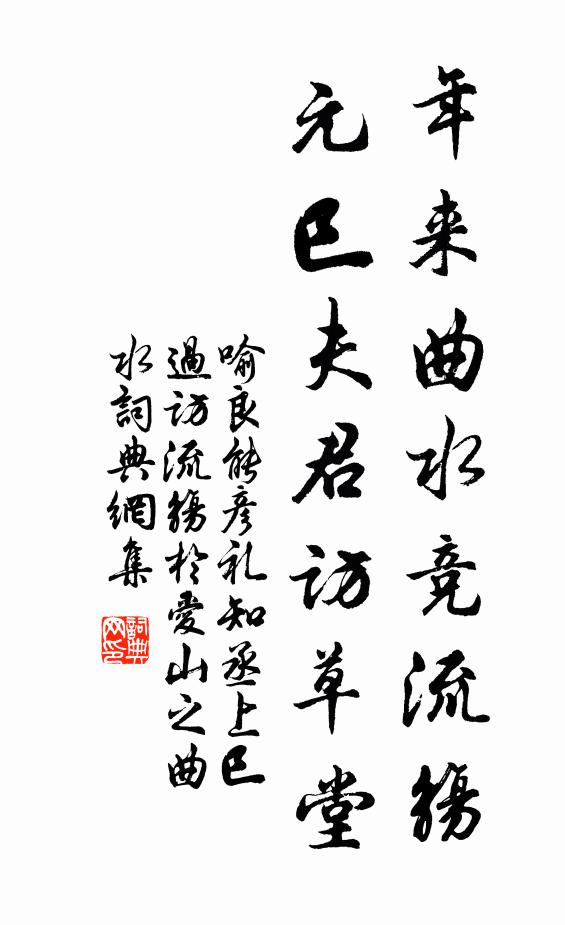 年来曲水竞流觞
元巳夫君访草堂
喻良能彦礼知丞上巳
過访流觞於愛山之曲
水詞典網集
詞典网印